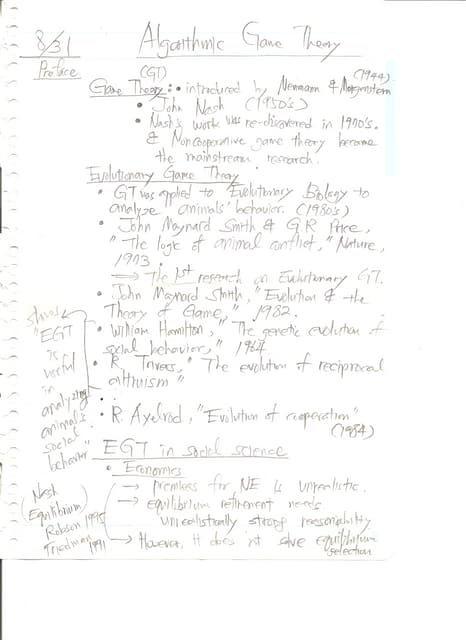 8/31 Algorithmic Game Theory
Preface
(GT) (1944)
Game Theory: • introduced by Neumann & Morgenstern
• John Nash (1950's)
• Nash's work was re-discovered in 1970's.
& Noncooperative game theory became
the mainstream research.
Evolutionary Game Theory
• GT was applied to Evolutionary Biology to
analyze animals' behavior. (1980's)
• John Maynard Smith & G.R. Price,
"The logic of animal conflict," Nature,
1973.
⟹ The 1st research on Evolutionary GT.
• John Maynard Smith, "Evolution & the
Theory of Game," 1982.
• William Hamilton, "The genetic evolution of
social behavior," 1964
• R. Trivers, "The evolution of reciprocal
altruism"
shows
"EGT
is
useful
in
analyzing
animal's
social
behavior"
• R. Axelrod, "Evolution of cooperation"
(1984)
EGT in social science
• Economics
→ premises for NE is unrealistic.
→ equilibrium refinement needs
unrealistically strong
→ However, it does n't solve equilibrium
selection
Nash
(Equilibrium)
Robson 1995
Friedman 1991